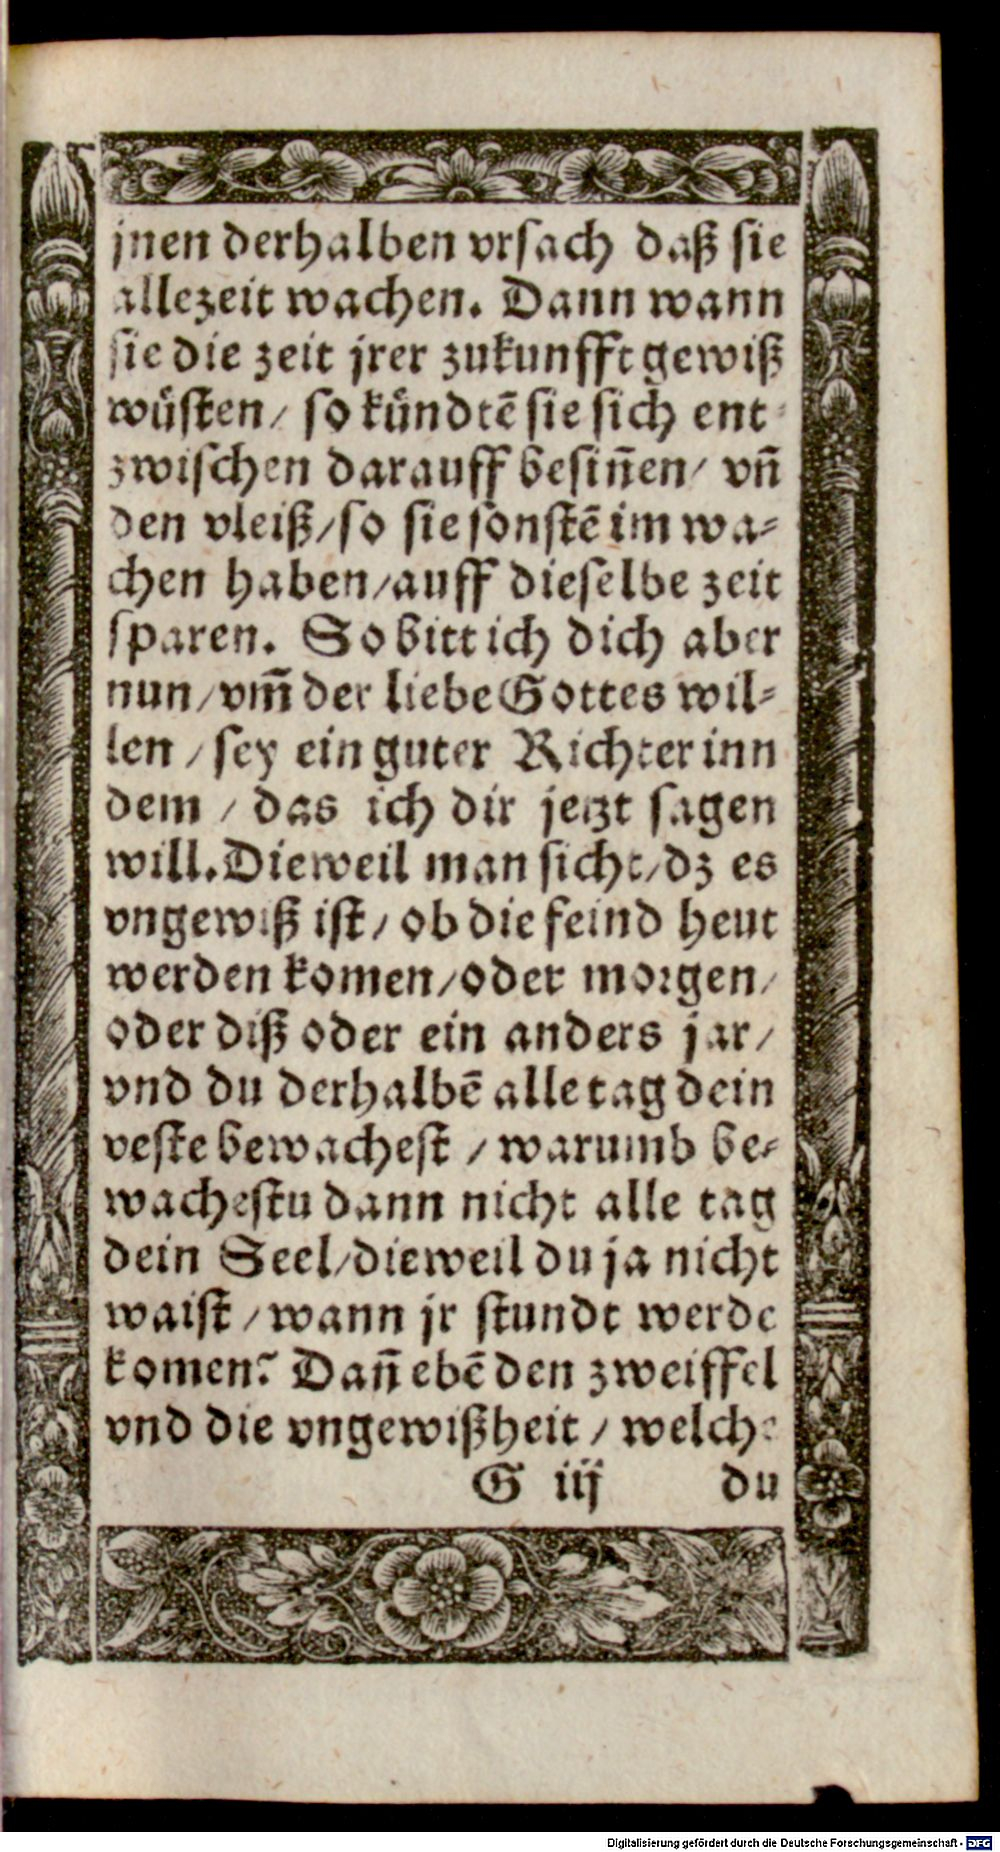 jnen derhalben vrsach daß sie
allezeit wachen. Dann wann
sie die zeit jrer zukunfft gewiß
wuͤsten / so kuͤndtē sie sich ent⸗
zwischen darauff besiñen / vñ
den vleiß / so sie sonstē im wa⸗
chen haben / auff dieselbe zeit
sparen. So bitt ich dich aber
nun / vm̄ der liebe Gottes wil⸗
len / sey ein guter Richter inn
dem / das ich dir jetzt sagen
will. Dieweil man sicht / dz es
vngewiß ist / ob die feind heut
werden komen / oder morgen /
oder diß oder ein anders jar /
vnd du derhalbē alle tag dein
veste bewachest / warumb be⸗
wachestu dann nicht alle tag
dein Seel / dieweil du ja nicht
waist / wann jr stundt werde
komen? Dañ ebē den zweiffel
vnd die vngewißheit / welche
G iij du
Digitalisierung gefördert durch die Deutsche Forschungsgemeinschaft - DFG